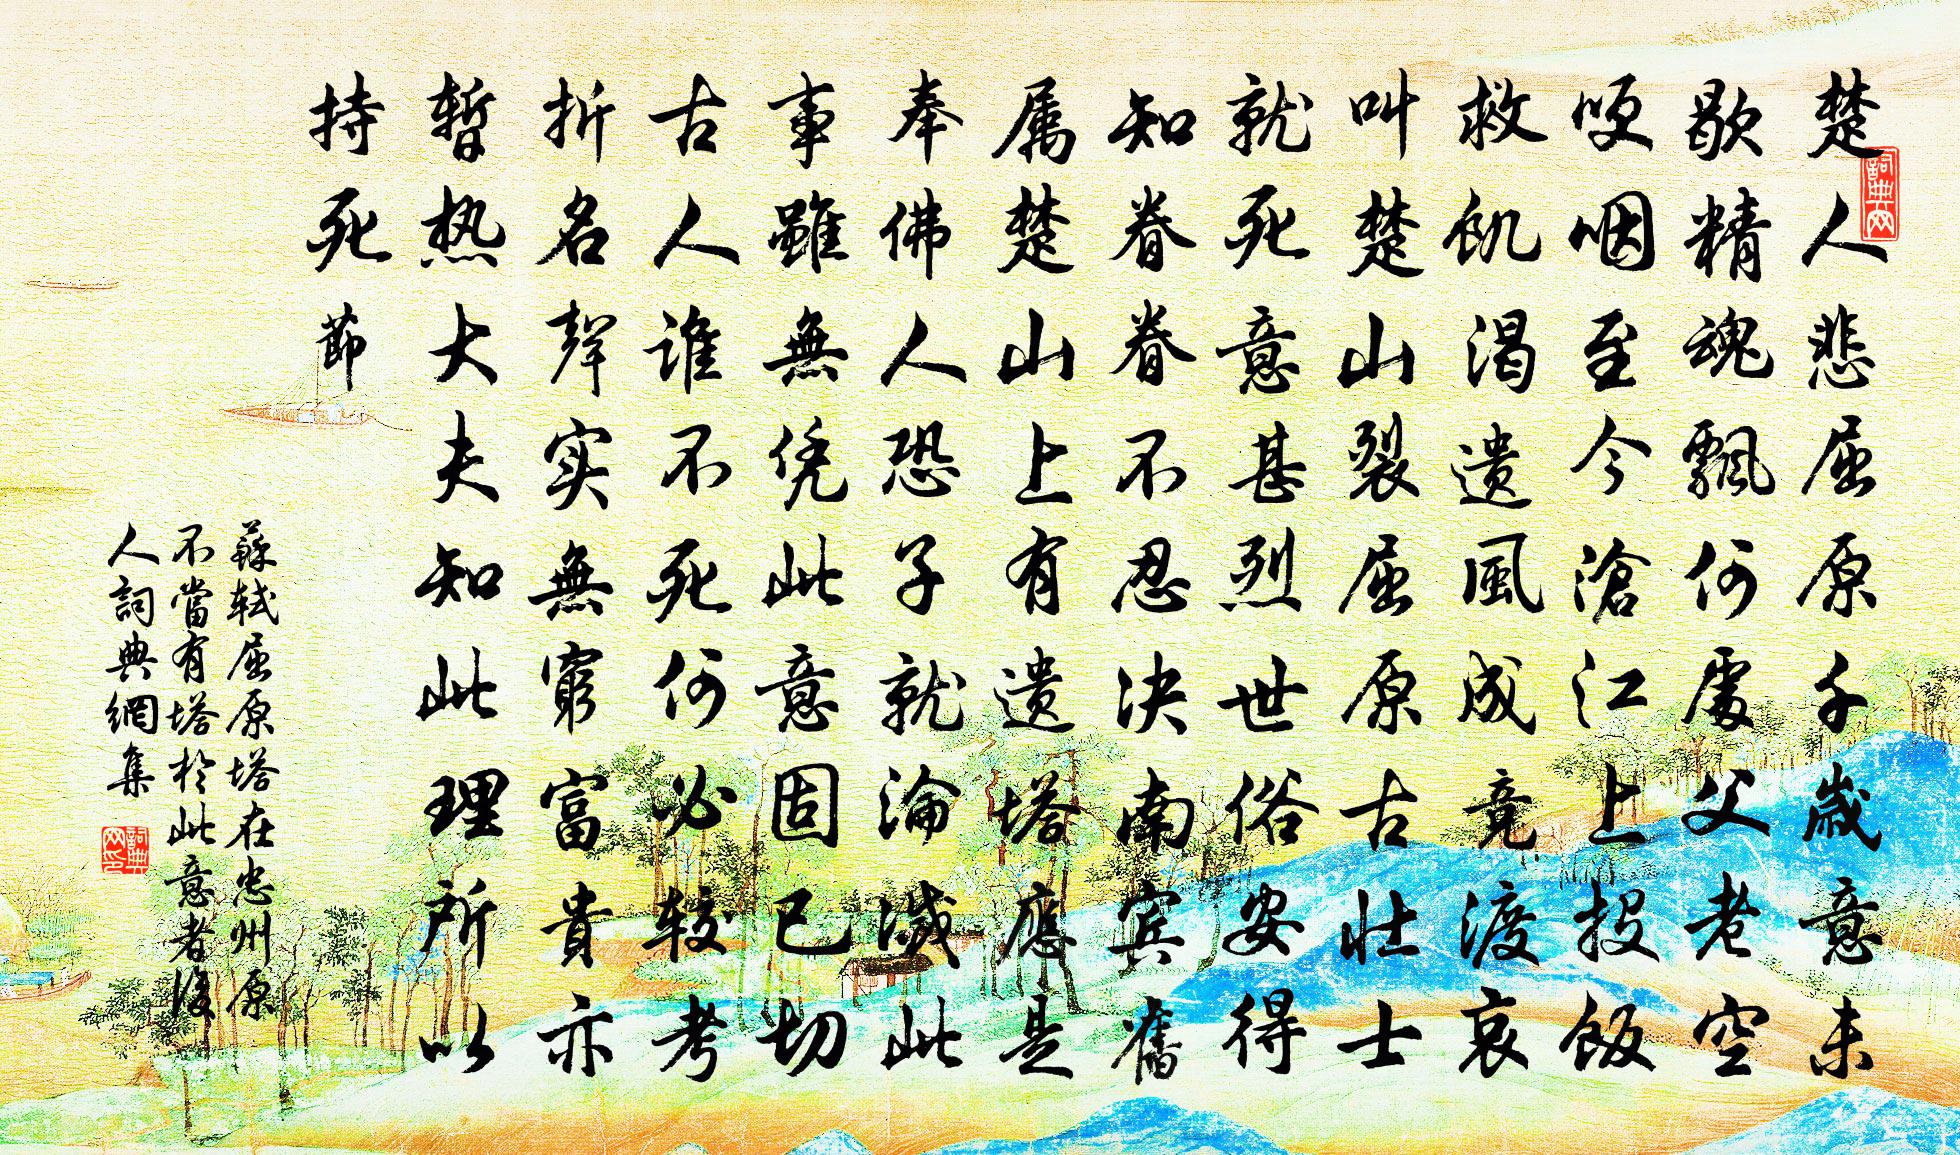 楚人悲屈原千歲意未
歇精魂飄何處父老空
哽咽至今滄江上投飯
救飢渴遺風成競渡哀
叫楚山裂屈原古壯士
就死意甚烈世俗安得
知眷眷不忍決南賓舊
属楚山上有遺塔應是
奉佛人恐子就淪滅此
事雖無凭此意固已切
古人誰不死何必較考
折名聲实無窮富貴亦
暫热大夫知此理所以
持死節
蘇軾屈原塔在忠州原
不當有塔於此意者後
人詞典網集
詞典网